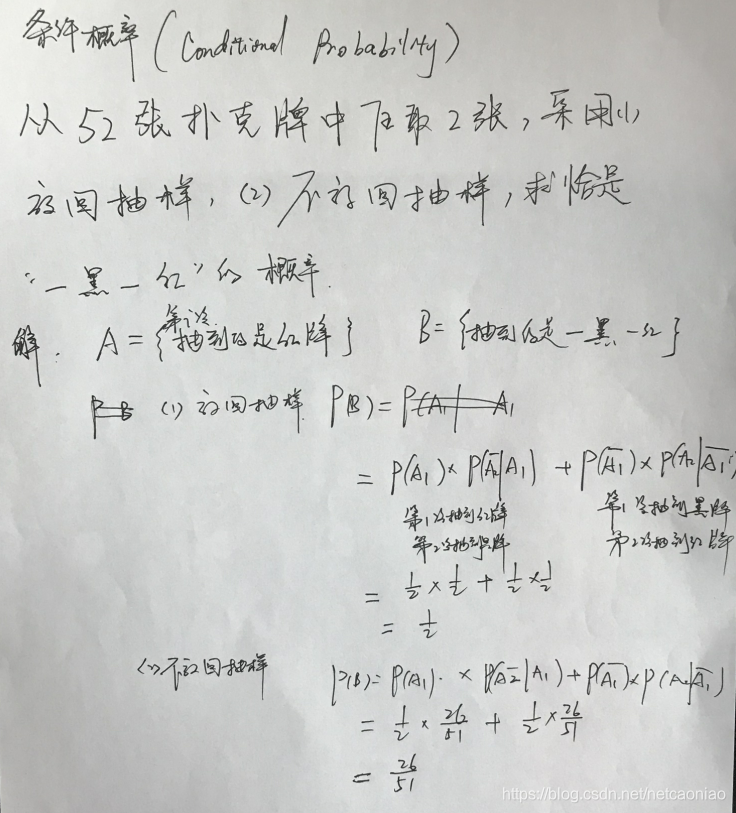 条件概率(Conditional Probability)
从52张扑克牌中任取2张,采用(1)
放回抽样,(2)不放回抽样,求恰是
"一黑一红"的概率.
解. A={第i次抽到的是红牌} B={抽到的是一黑一红}
(1)放回抽样. P(B)=
=P(A₁)×P(A̅₂|A₁)+P(A̅₁)×P(A₂|A̅₁)
第1次抽到红牌 第1次抽到黑牌
第2次抽到黑牌 第2次抽到红牌
=1/2×1/2+1/2×1/2
=1/2
(2)不放回抽样 P(B)=P(A₁)·×P(A̅₂|A₁)+P(A̅₁)×P(A₂|A̅₁)
=1/2×26/51+1/2×26/51
=26/51
https://blog.csdn.net/netcaoniao